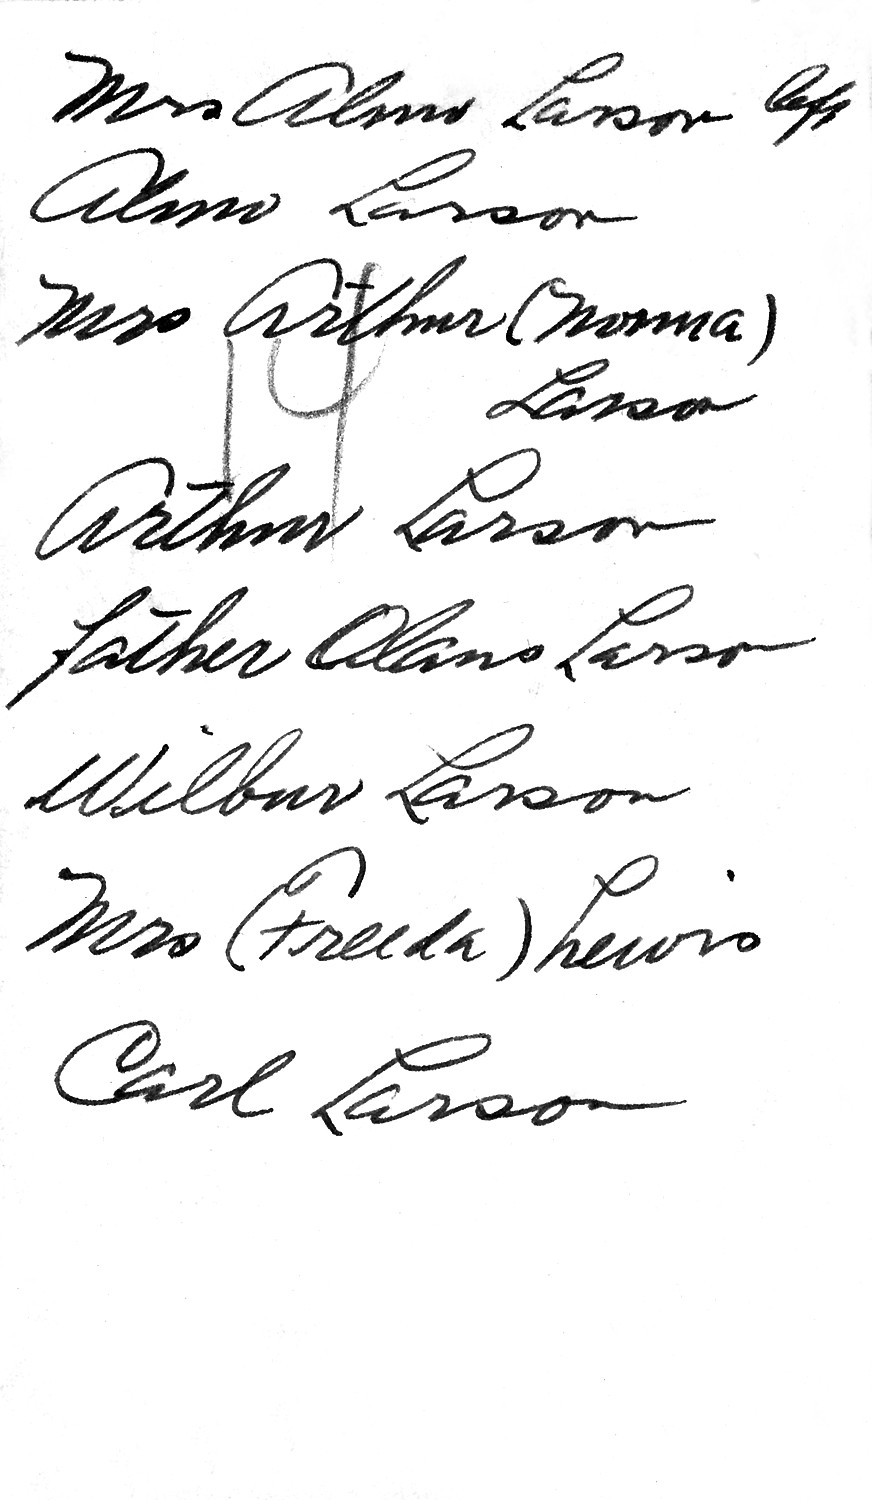 Mrs Almo Larson left
Almo Larson
Mrs Arthur (Norma)
Larson
14
Arthur Larson
Father Olans Larson
Wilbur Larson
Mrs (Freeda) Lewis
Carl Larson